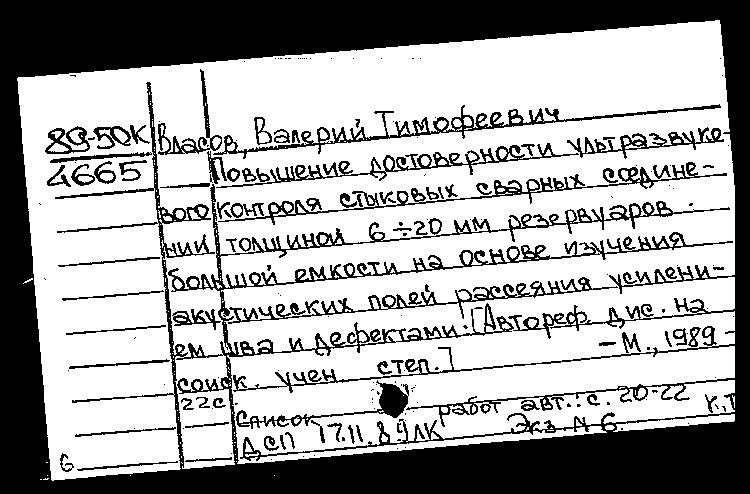 89-50К Власов, Валерий Тимофеевич
4665 Повышение достоверности ультразвуко-
вого контроля стыковых сварных соедине-
ний толщиной 6÷20 мм резервуаров
большой емкости на основе изучения
акустических полей рассеяния усилени-
ем шва и дефектами: [Автореф. дис. на
соиск. учен степ.] - М., 1989 -
22с
Список работ авт.: с. 20-22
ДСП 17.11.89 ЛК Экз. № 6. К.Т
6